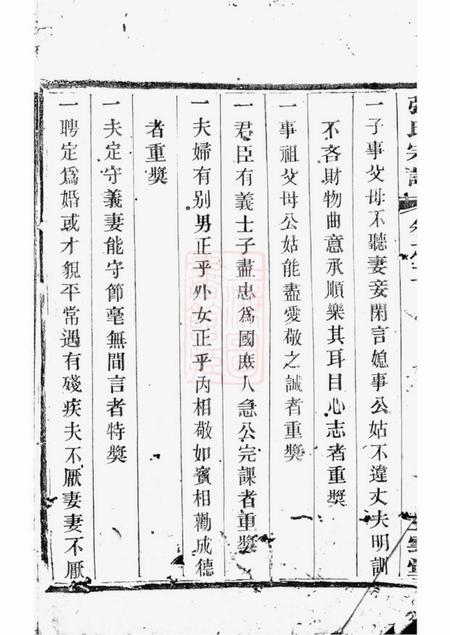 張氏宗譜
一子事父母不聽妻妾閑言媳事公姑不違丈夫明訓
不吝財物曲意承順樂其耳目心志者重奬
一事祖父母公姑能盡愛敬之誠者重奬
一君臣有義士子盡忠為國庶人急公完課者重奬
一夫婦有别男正乎外女正乎内相敬如賓相勸成德
者重奬
一夫定守義妻能守節毫無間言者特奬
一聘定為婚或才貌平常遇有殘疾夫不厭妻妻不厭